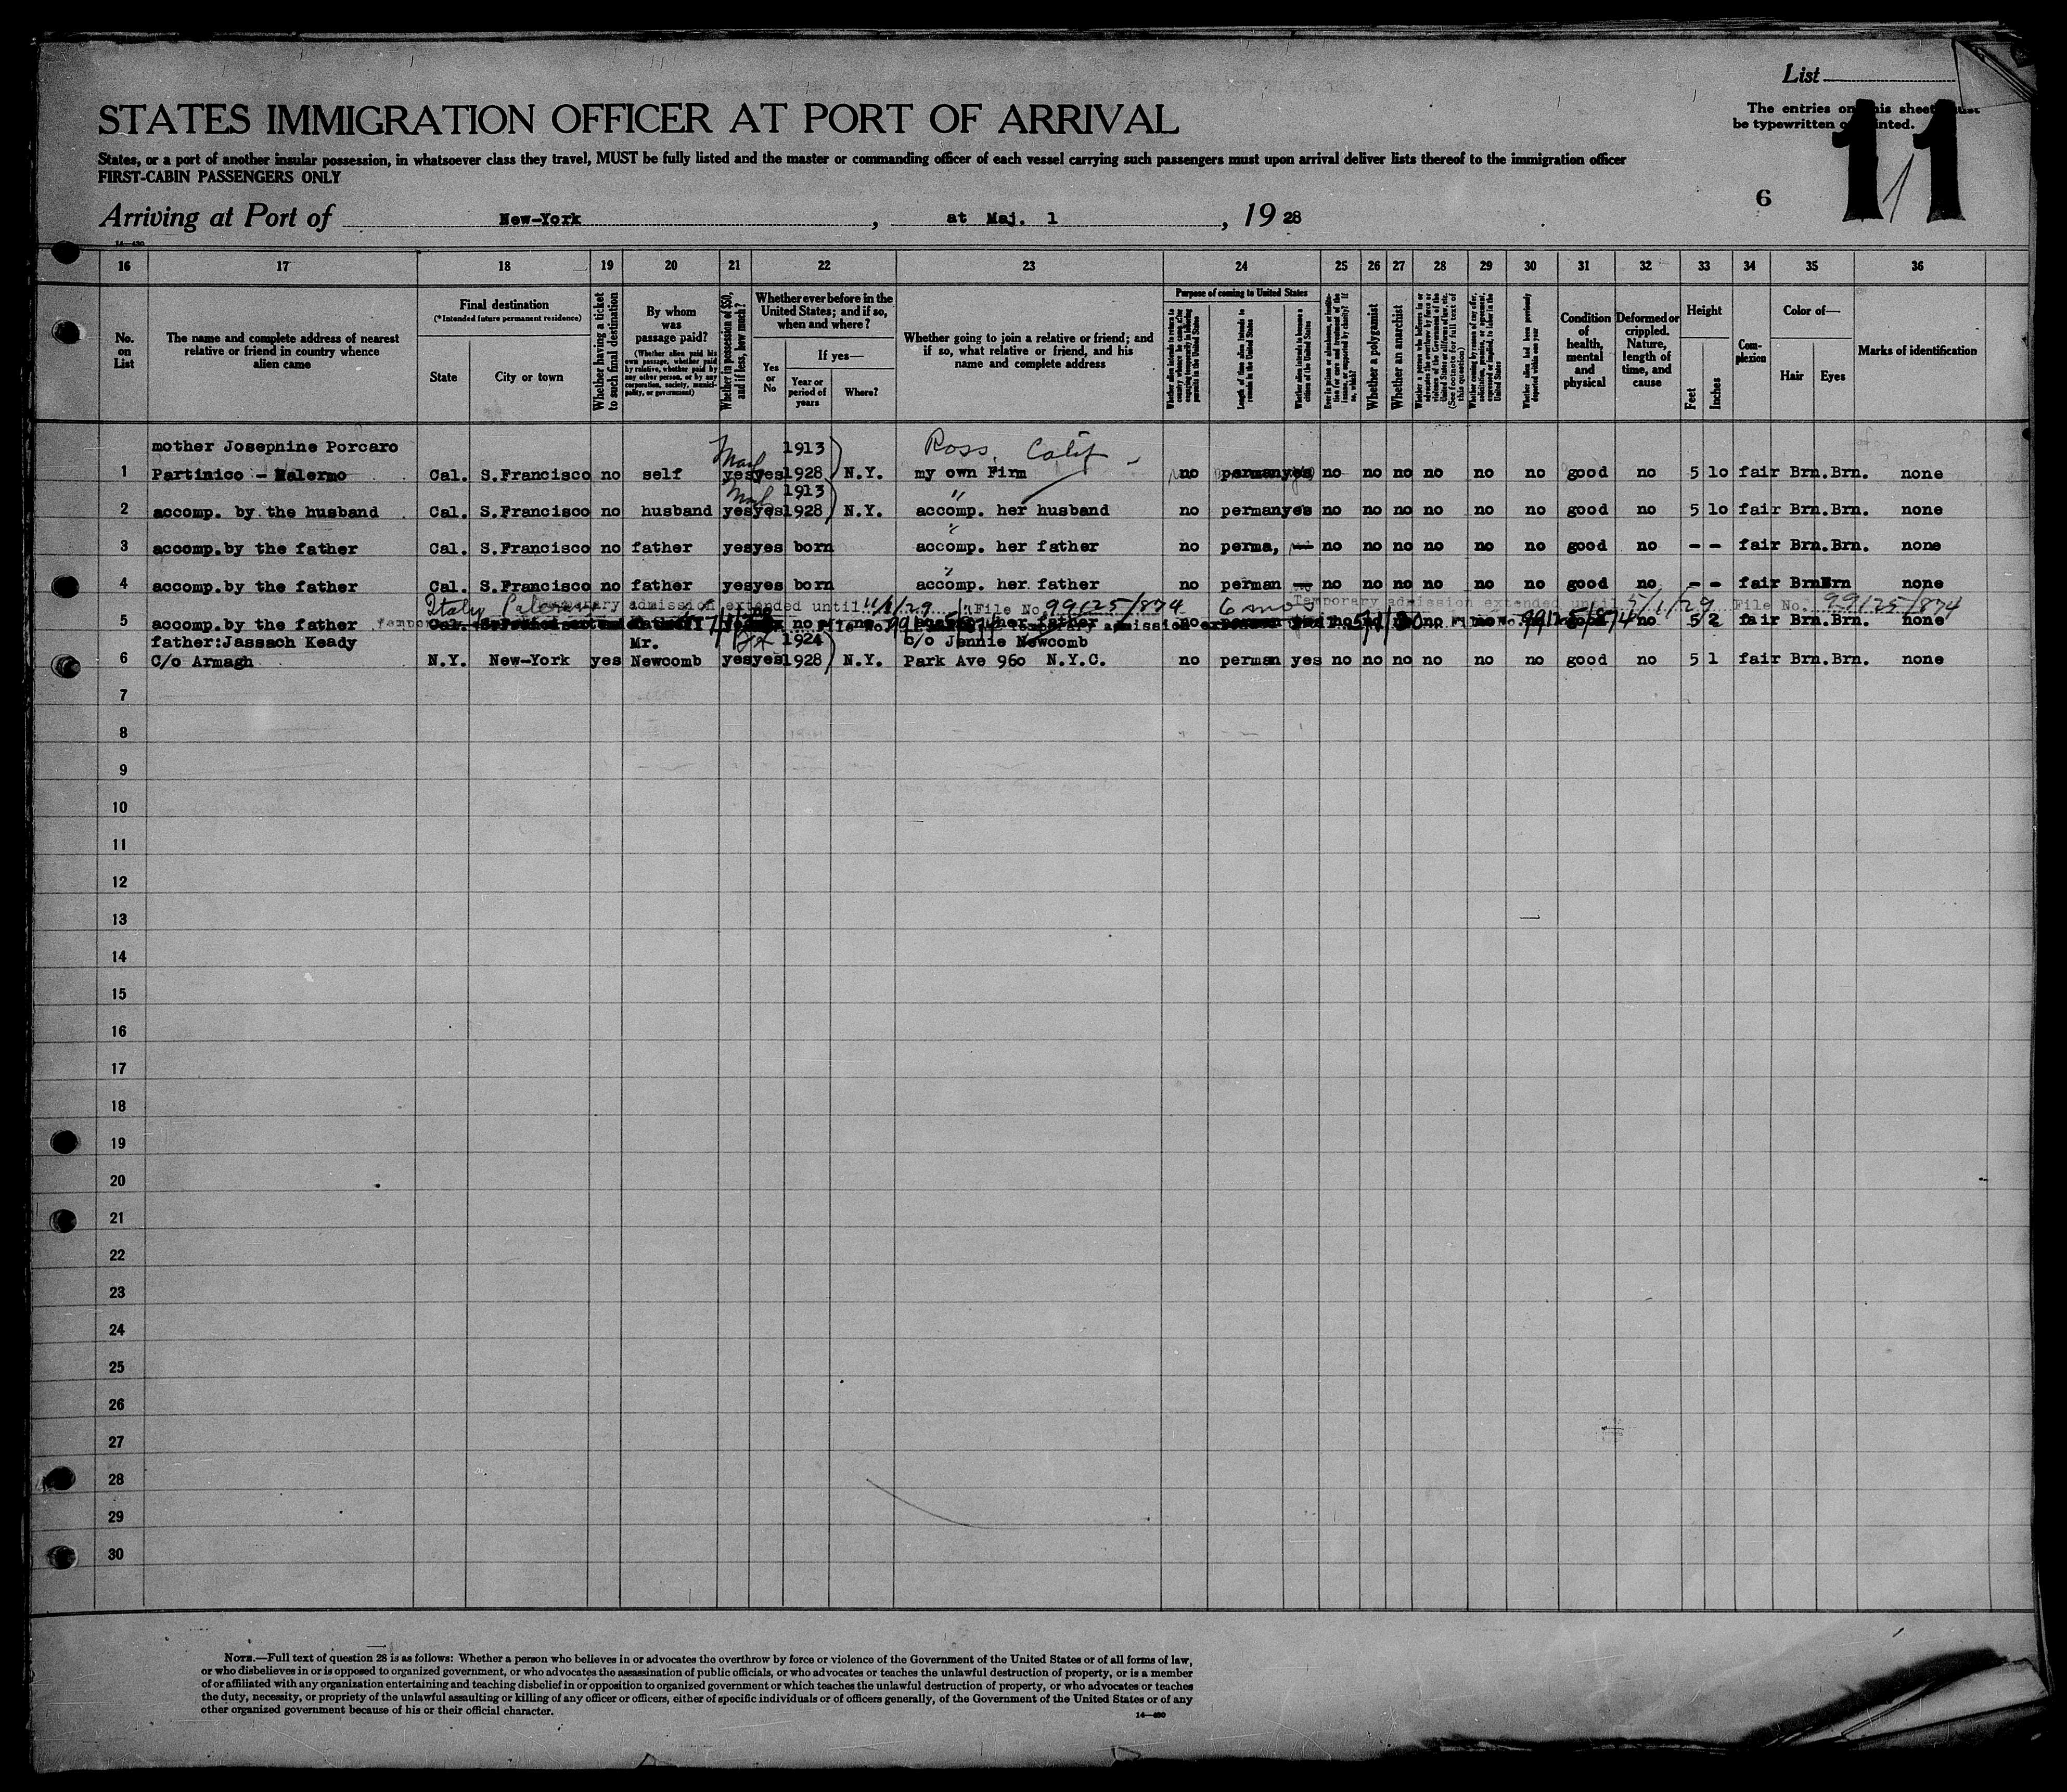 List
The entries on this sheet must
be typewritten or printed.
11
STATES IMMIGRATION OFFICER AT PORT OF ARRIVAL
States, or a port of another insular possession, in whatsoever class they travel, MUST be fully listed and the master or commanding officer of each vessel carrying such passengers must upon arrival deliver lists thereof to the immigration officer
FIRST-CABIN PASSENGERS ONLY
6
Arriving at Port of New-York, at Maj. 1, 19 28
14—430
16 17 18 19 20 21 22 23 24 25 26 27 28 29 30 31 32 33 34 35 36
No. on List
The name and complete address of nearest relative or friend in country whence alien came
Final destination
(*Intended future permanent residence)
State
City or town
Whether having a ticket to such final destination
By whom was passage paid?
(Whether alien paid his own passage, whether paid by relative, whether paid by any other person, or by any corporation, society, municipality, or government)
Whether in possession of $50, and if less, how much?
Whether ever before in the United States; and if so, when and where?
Yes or No
If yes—
Year or period of years
Where?
Whether going to join a relative or friend; and if so, what relative or friend, and his name and complete address
Purpose of coming to United States
Length of time alien intends to remain in the United States
Whether alien intends to become a citizen of the United States
Whether a polygamist
Whether an anarchist
(See footnote for full text of this question)
Whether alien had been previously deported within one year
Condition of health, mental and physical
Deformed or crippled. Nature, length of time, and cause
Height
Feet
Inches
Complexion
Color of—
Hair
Eyes
Marks of identification
mother Josephine Porcaro 1913 Ross. Calif
1 Partinico - Palermo Cal. S.Francisco no self yes yes 1928 N.Y. my own Firm no perman yes no no no no no no good no 5 10 fair Brn. Brn. none
1913 "
2 accomp. by the husband Cal. S.Francisco no husband yes yes 1928 N.Y. accomp. her husband no perman yes no no no no no no good no 5 10 fair Brn. Brn. none
"
3 accomp.by the father Cal. S.Francisco no father yes yes born accomp. her father no perma, — no no no no no no good no - - fair Brn. Brn. none
"
4 accomp.by the father Cal. S.Francisco no father yes yes born accomp. her father no perman — no no no no no no good no - - fair Brn Brn none
Italy Palermo Temporary admission extended until 11/1/29 File No. 99125/874 6 mos Temporary admission extended until 5/1/29 File No. 99125/874
5 accomp.by the father Cal. no no her father no no no 5 2 fair Brn. Brn. none
father:Jassach Keady Mr. 1924 c/o Jennie Newcomb
6 C/o Armagh N.Y. New-York yes Newcomb yes yes 1928 N.Y. Park Ave 960 N.Y.C. no perman yes no no no no no no good no 5 1 fair Brn. Brn. none
7
8
9
10
11
12
13
14
15
16
17
18
19
20
21
22
23
24
25
26
27
28
29
30
NOTE.—Full text of question 28 is as follows: Whether a person who believes in or advocates the overthrow by force or violence of the Government of the United States or of all forms of law,
or who disbelieves in or is opposed to organized government, or who advocates the assassination of public officials, or who advocates or teaches the unlawful destruction of property, or is a member
of or affiliated with any organization entertaining and teaching disbelief in or opposition to organized government or which teaches the unlawful destruction of property, or who advocates or teaches
the duty, necessity, or propriety of the unlawful assaulting or killing of any officer or officers, either of specific individuals or of officers generally, of the Government of the United States or of any
other organized government because of his or their official character.
14—430